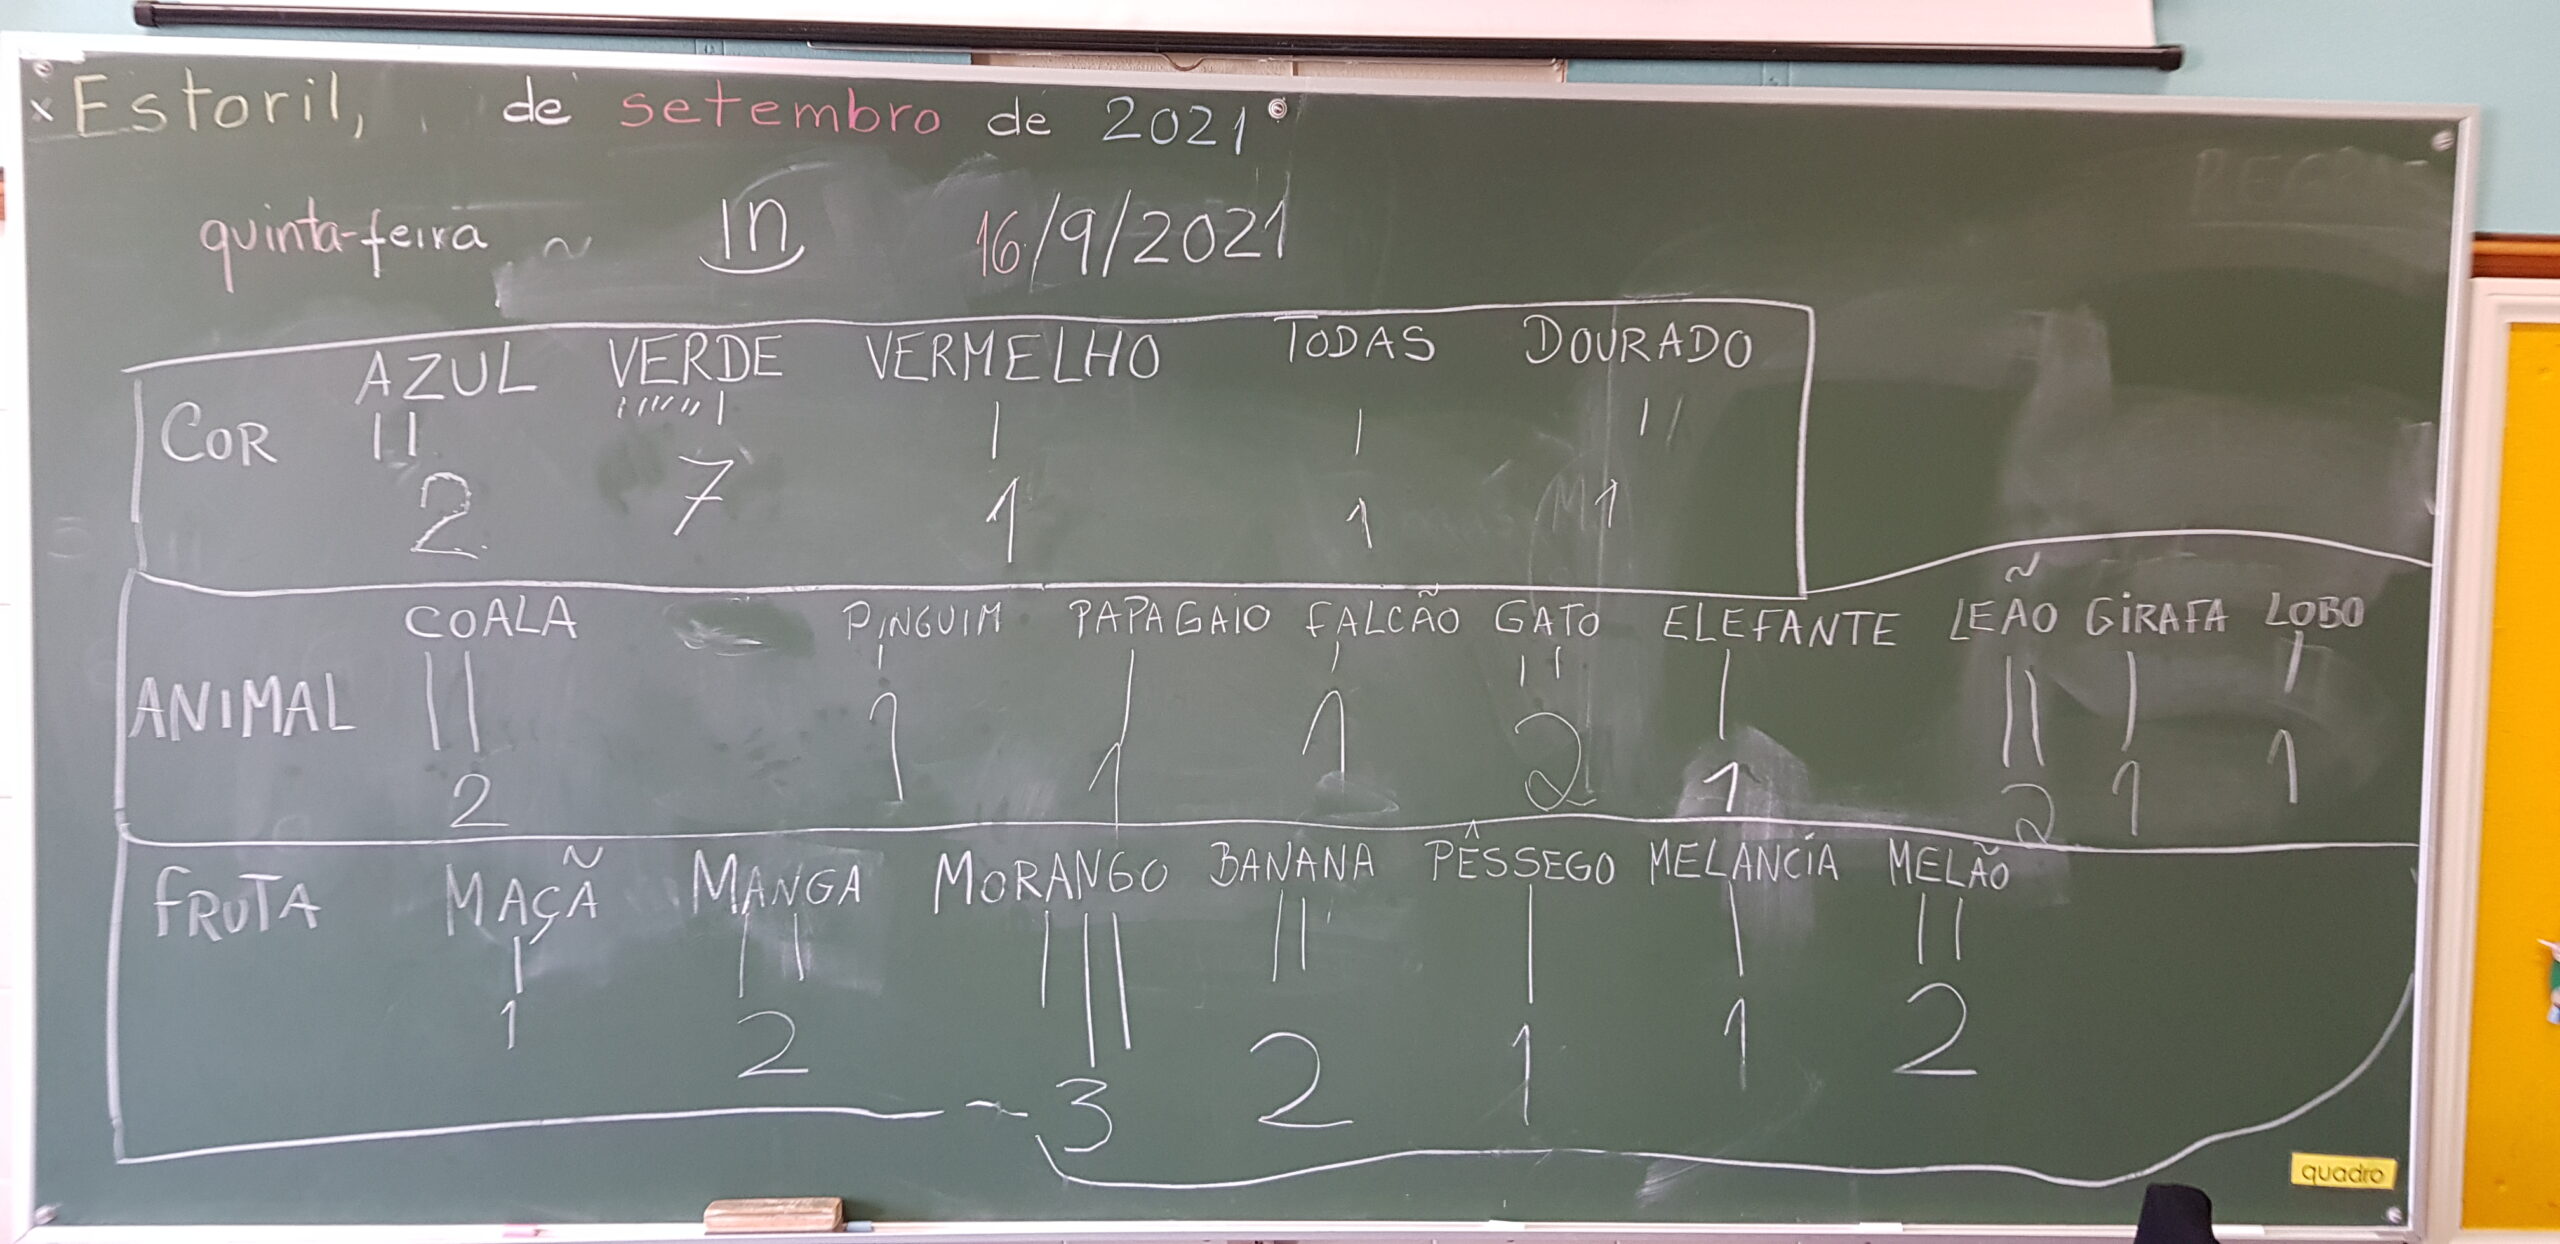 x Estoril, de setembro de 2021
quinta-feira ~ in 16/9/2021
AZUL VERDE VERMELHO TODAS DOURADO
COR
2 7 1 1 1
COALA PINGUIM PAPAGAIO FALCÃO GATO ELEFANTE LEÃO GIRAFA LOBO
ANIMAL
2 1 1 1 2 1 2 1 1
FRUTA MAÇÃ MANGA MORANGO BANANA PÊSSEGO MELANCÍA MELÃO
1 2 3 2 1 1 2
quadro